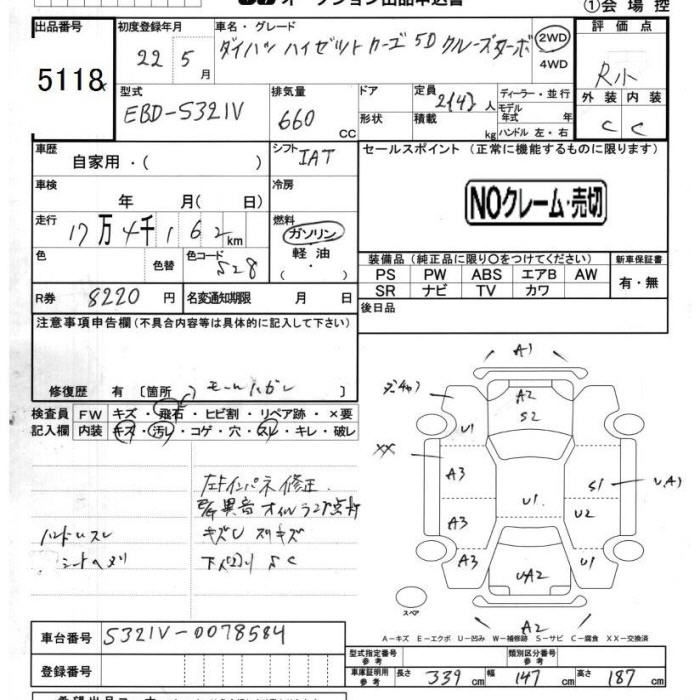 オークション出品申込書
①会場控
出品番号
5118
初度登録年月
22 5月
車名・グレード
ダイハツ ハイゼット カーゴ 5D クルーズターボ
2WD
4WD
評価点
R小
外装 内装
C C
型式
EBD-S321V
排気量
660 CC
ドア
形状
定員
2(4)人
積載
kg
ディーラー・並行
モデル年式 年
ハンドル 左・右
車歴
自家用・( )
シフト
IAT
セールスポイント (正常に機能するものに限ります)
NOクレーム・売切
車検
年 月( 日)
冷房
走行
17万4千162km
燃料
ガソリン
軽油
( ・ )
色
色替
色コード
S28
装備品(純正品に限り○をつけてください)
新車保証書
PS PW ABS エアB AW
SR ナビ TV カワ
有・無
R券 8220円
名変通知期限 月 日
後日品
注意事項申告欄(不具合内容等は具体的に記入して下さい)
修復歴 有 〔箇所 〕
モールハガレ
検査員
記入欄
FW キズ・飛石・ヒビ割・リペア跡・×要
内装 キズ・汚レ・コゲ・穴・スレ・キレ・破レ
ハンドルスレ
シートヘタリ
修正
異音 オイルランプ点灯
キズU スリキズ
下廻りSC
A1
A2
S2
U1
XX
A3
S1
UA1
A3
U1
U2
A3
UA2
U1
スペア
A2
A-キズ E-エクボ U-凹み W-補修跡 S-サビ C-腐食 XX-交換済
車台番号 S321V-0078584
登録番号
型式指定番号 参考
類別区分番号 参考
車庫証明用 参考 長さ 339cm 幅 147cm 高さ 187cm